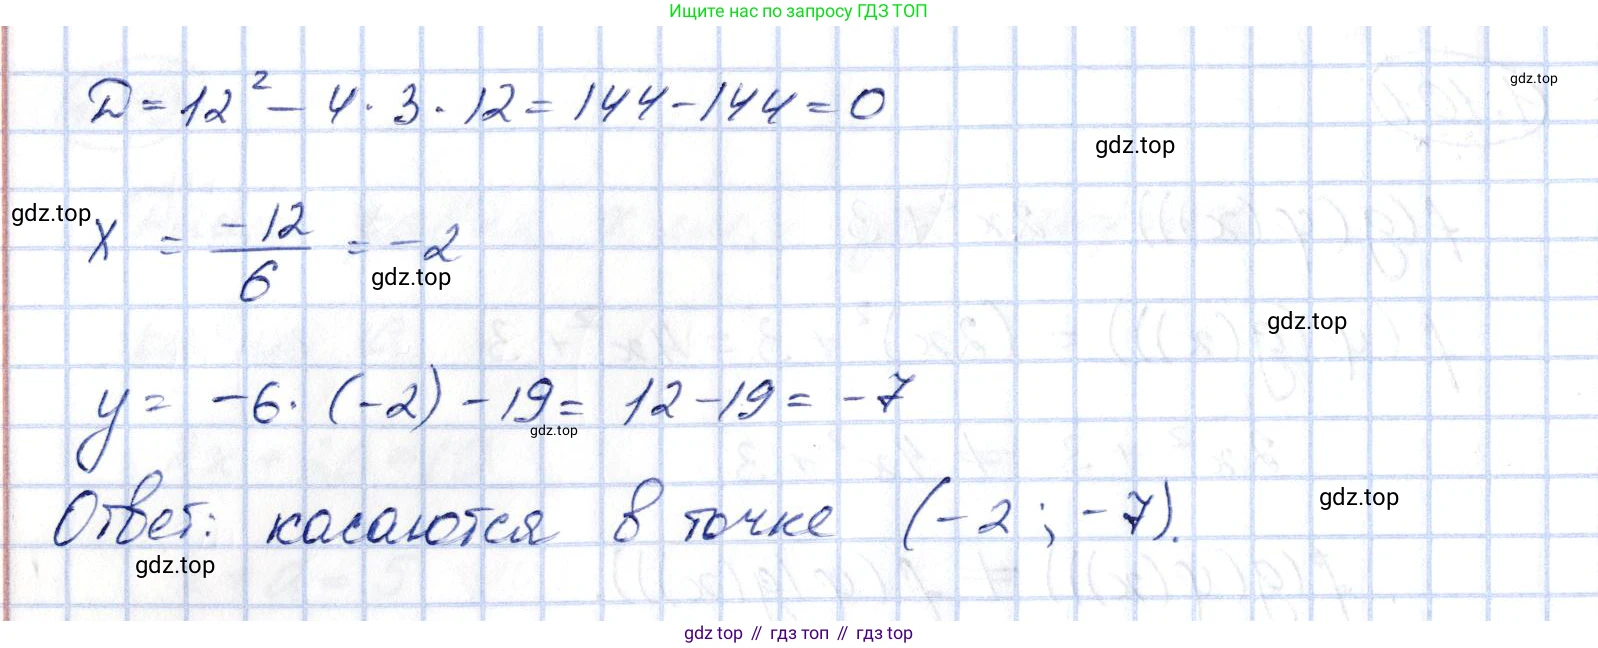 Ищите нас по запросу ГДЗ ТОП
gdz.top
D = 12² - 4 · 3 · 12 = 144 - 144 = 0
gdz.top
gdz.top
x = -12/6 = -2
gdz.top
gdz.top
y = -6 · (-2) - 19 = 12 - 19 = -7
gdz.top
Ответ: касаются в точке (-2; -7).
gdz.top
gdz.top
gdz top // гдз топ // гдз top